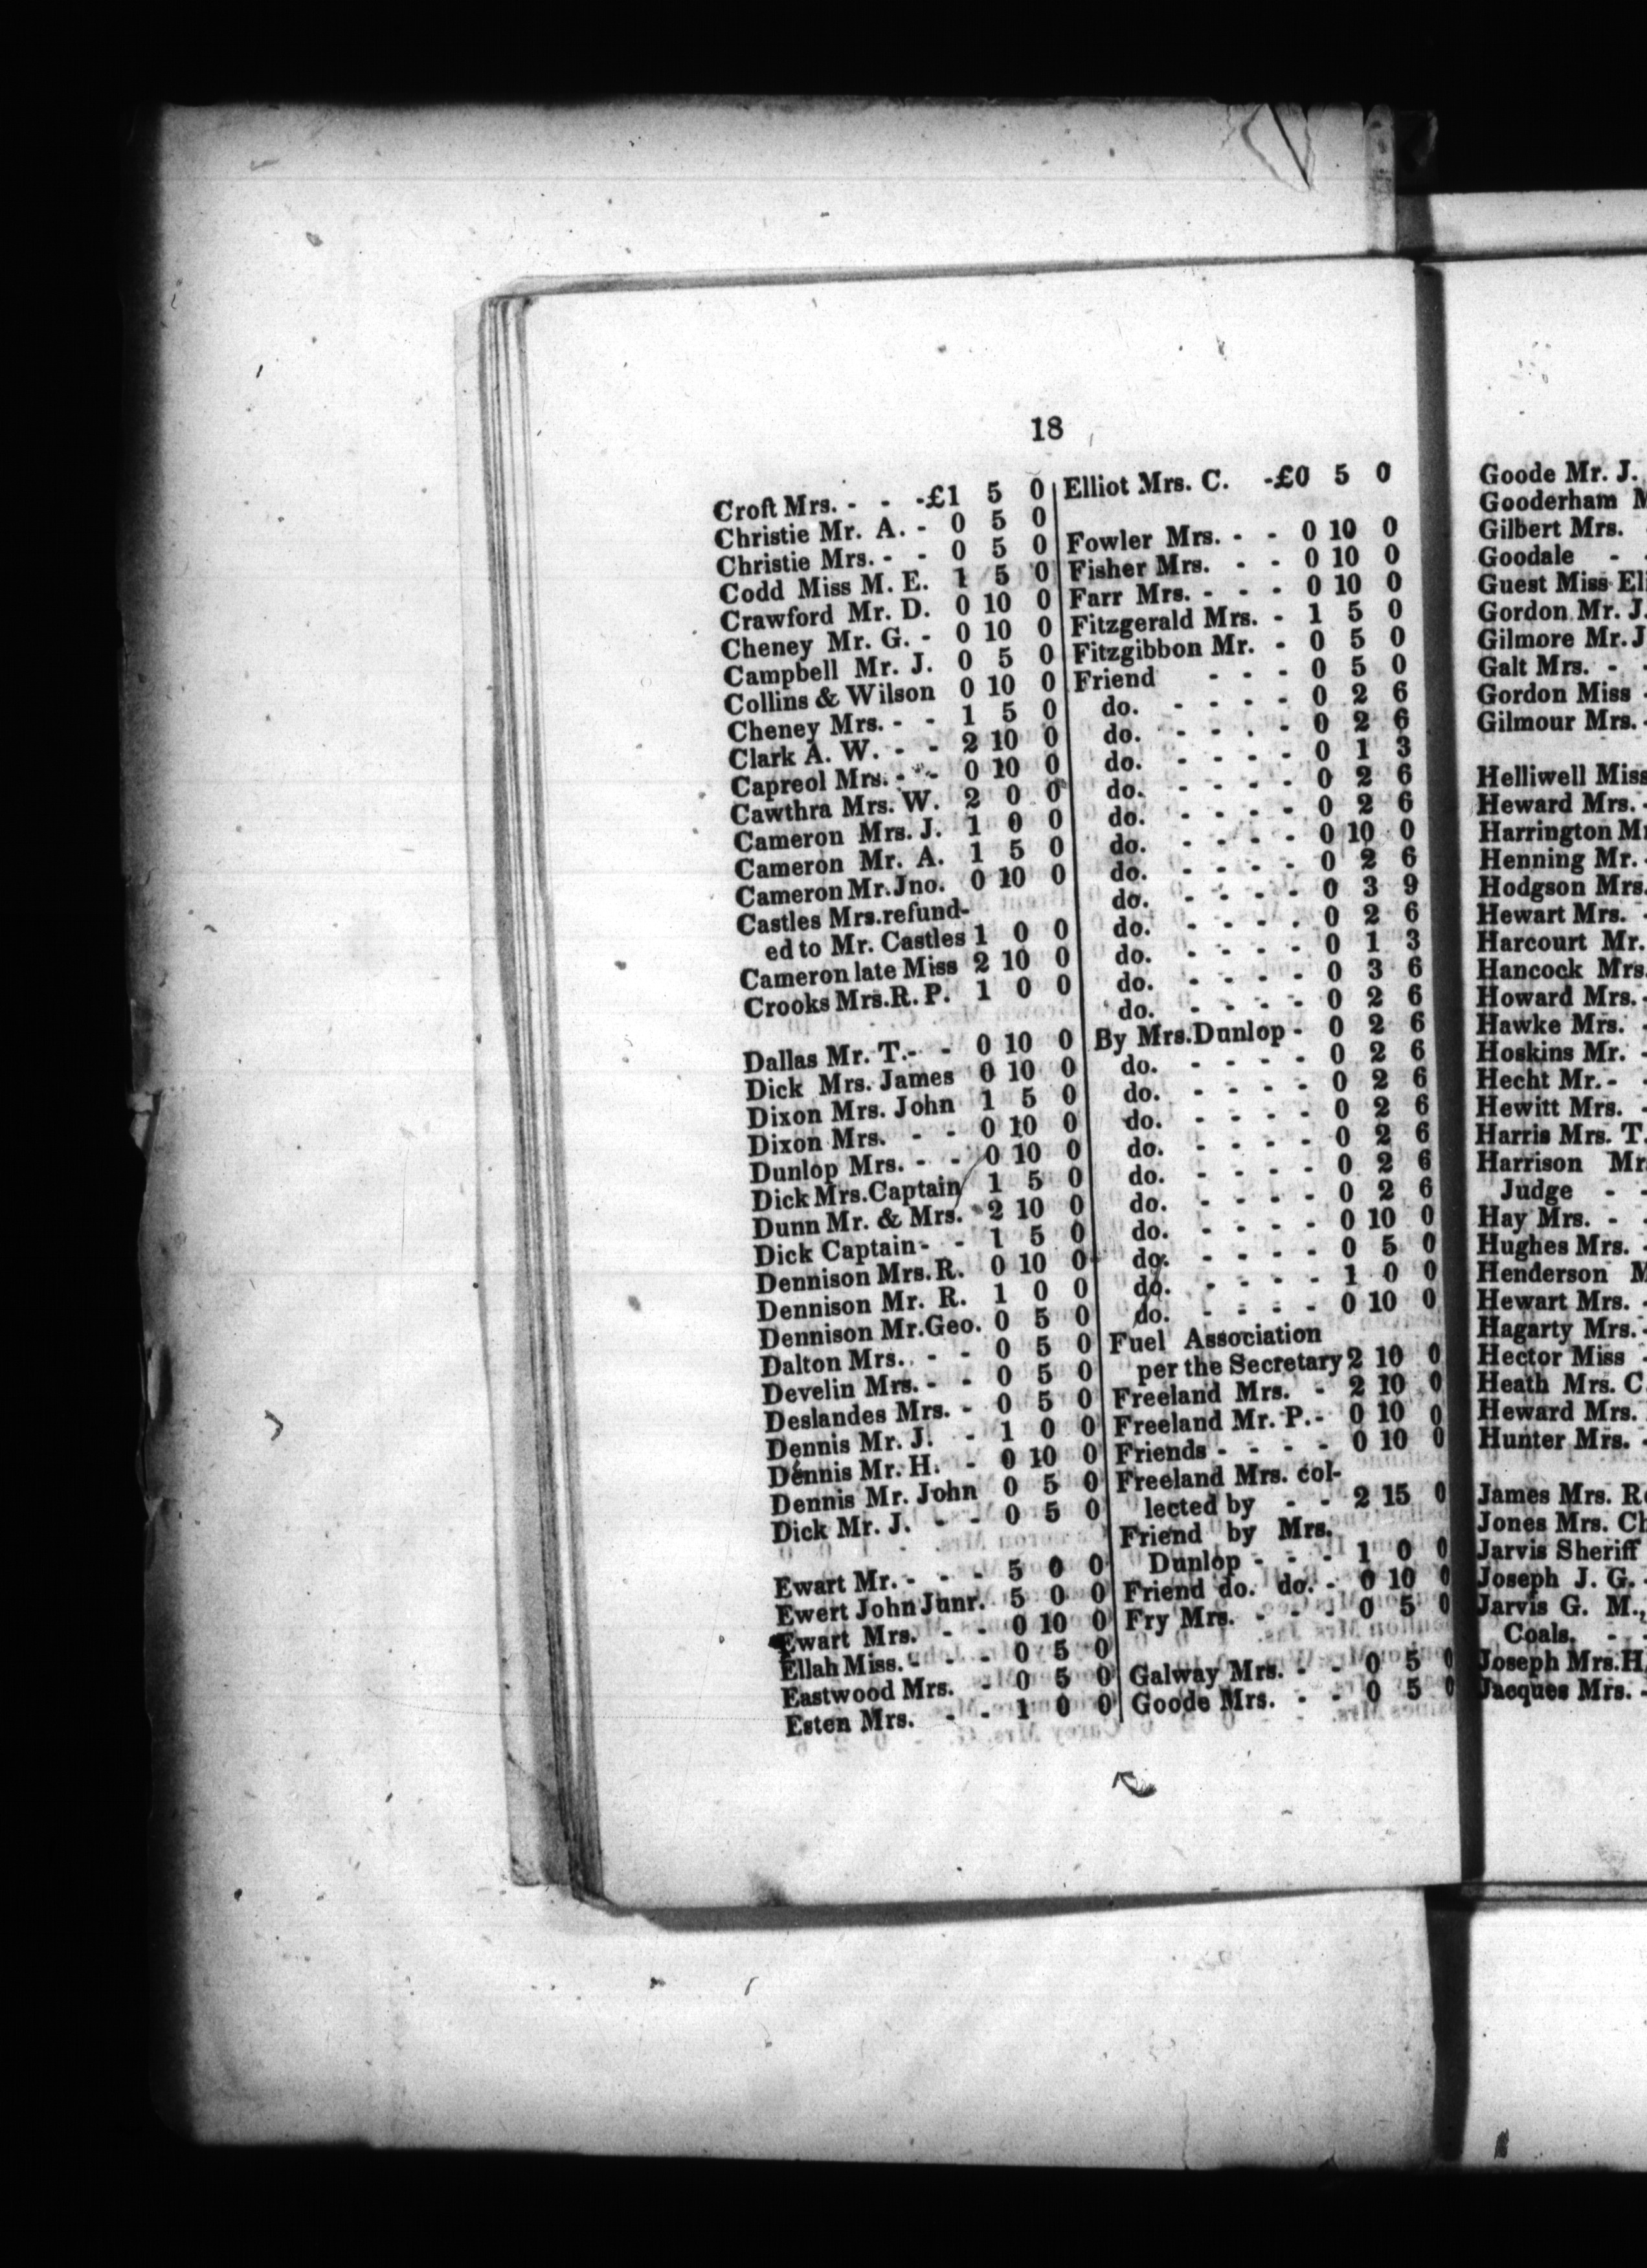 18
Croft Mrs. - - -£1 5 0
Christie Mr. A. - 0 5 0
Christie Mrs. - - 0 5 0
Codd Miss M. E. 1 5 0
Crawford Mr. D. 0 10 0
Cheney Mr. G. - 0 10 0
Campbell Mr. J. 0 5 0
Collins & Wilson 0 10 0
Cheney Mrs. - - 1 5 0
Clark A. W. - - 2 10 0
Capreol Mrs. - - 0 10 0
Cawthra Mrs. W. 2 0 0
Cameron Mrs. J. 1 0 0
Cameron Mr. A. 1 5 0
Cameron Mr. Jno. 0 10 0
Castles Mrs. refund-
ed to Mr. Castles 1 0 0
Cameron late Miss 2 10 0
Crooks Mrs. R. P. 1 0 0
Dallas Mr. T. - - 0 10 0
Dick Mrs. James 0 10 0
Dixon Mrs. John 1 5 0
Dixon Mrs. - - 0 10 0
Dunlop Mrs. - - 0 10 0
Dick Mrs. Captain 1 5 0
Dunn Mr. & Mrs. 2 10 0
Dick Captain - - 1 5 0
Dennison Mrs. R. 0 10 0
Dennison Mr. R. 1 0 0
Dennison Mr. Geo. 0 5 0
Dalton Mrs. - - 0 5 0
Develin Mrs. - - 0 5 0
Deslandes Mrs. - 0 5 0
Dennis Mr. J. - 1 0 0
Dennis Mr. H. - 0 10 0
Dennis Mr. John 0 5 0
Dick Mr. J. - - 0 5 0
Ewart Mr. - - - 5 0 0
Ewert John Junr. 5 0 0
Ewart Mrs. - - 0 10 0
Ellah Miss. - - - 0 5 0
Eastwood Mrs. - 0 5 0
Esten Mrs. - - 1 0 0
Elliot Mrs. C. -£0 5 0
Fowler Mrs. - - 0 10 0
Fisher Mrs. - - 0 10 0
Farr Mrs. - - - 0 10 0
Fitzgerald Mrs. - 1 5 0
Fitzgibbon Mr. - 0 5 0
Friend - - - 0 5 0
do. - - - - 0 2 6
do. - - - - 0 2 6
do. - - - - 0 1 3
do. - - - - 0 2 6
do. - - - - 0 2 6
do. - - - - 0 10 0
do. - - - - 0 2 6
do. - - - - 0 3 9
do. - - - - 0 2 6
do. - - - - 0 1 3
do. - - - - 0 3 6
do. - - - - 0 2 6
By Mrs. Dunlop - 0 2 6
do. - - - - 0 2 6
do. - - - - 0 2 6
do. - - - - 0 2 6
do. - - - - 0 2 6
do. - - - - 0 2 6
do. - - - - 0 2 6
do. - - - - 0 10 0
do. - - - - 0 5 0
do. - - - - 1 0 0
do. - - - - 0 10 0
Fuel Association
per the Secretary 2 10 0
Freeland Mrs. - 2 10 0
Freeland Mr. P. - 0 10 0
Friends - - - - 0 10 0
Freeland Mrs. col-
lected by - - 2 15 0
Friend by Mrs.
Dunlop - - - 1 0 0
Friend do. do. - 0 10 0
Fry Mrs. - - - 0 5 0
Galway Mrs. - - 0 5 0
Goode Mrs. - - 0 5 0
Goode Mr. J.
Gooderham M
Gilbert Mrs.
Goodale - -
Guest Miss Eli
Gordon Mr. J.
Gilmore Mr. J
Galt Mrs. - -
Gordon Miss -
Gilmour Mrs. -
Helliwell Miss
Heward Mrs. -
Harrington Mr
Henning Mr. -
Hodgson Mrs.
Hewart Mrs. -
Harcourt Mr.
Hancock Mrs.
Howard Mrs. -
Hawke Mrs. -
Hoskins Mr. -
Hecht Mr. - -
Hewitt Mrs. -
Harris Mrs. T.
Harrison Mr
Judge - -
Hay Mrs. - -
Hughes Mrs. -
Henderson M
Hewart Mrs. -
Hagarty Mrs. -
Hector Miss -
Heath Mrs. C
Heward Mrs.
Hunter Mrs. -
James Mrs. Ro
Jones Mrs. Ch
Jarvis Sheriff
Joseph J. G. -
Jarvis G. M.,
Coals. - -
Joseph Mrs. H.
Jacques Mrs. -